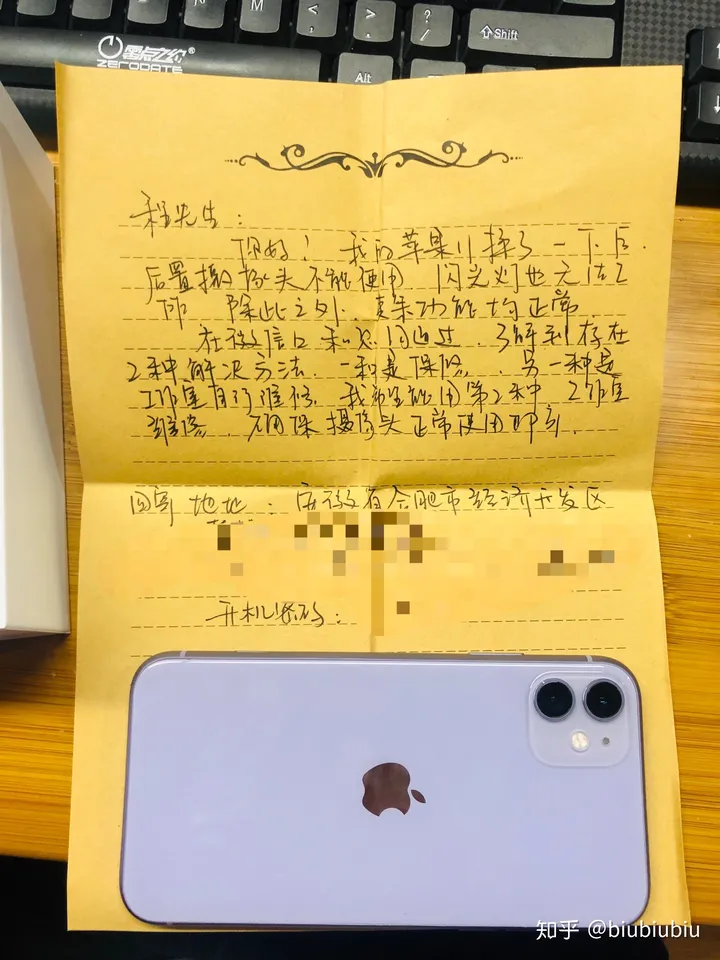 N
M
<
,
>
.
?
/
⇧Shift
Alt
零点之约®
ZERODATE
程先生：
你好！我的苹果11摔了一下后.
后置摄像头不能使用 闪光灯也无法工
作 除此之外、其余功能均正常.
在微信口和您沟通过、了解到存在
2种解决方法.一种是保险、另一种是
工作室自行维修.我希望能用第2种、工作室
维修、确保摄像头正常使用即可.
回寄地址：安徽省合肥市经济开发区
开机密码：
知乎 @biubiubiu